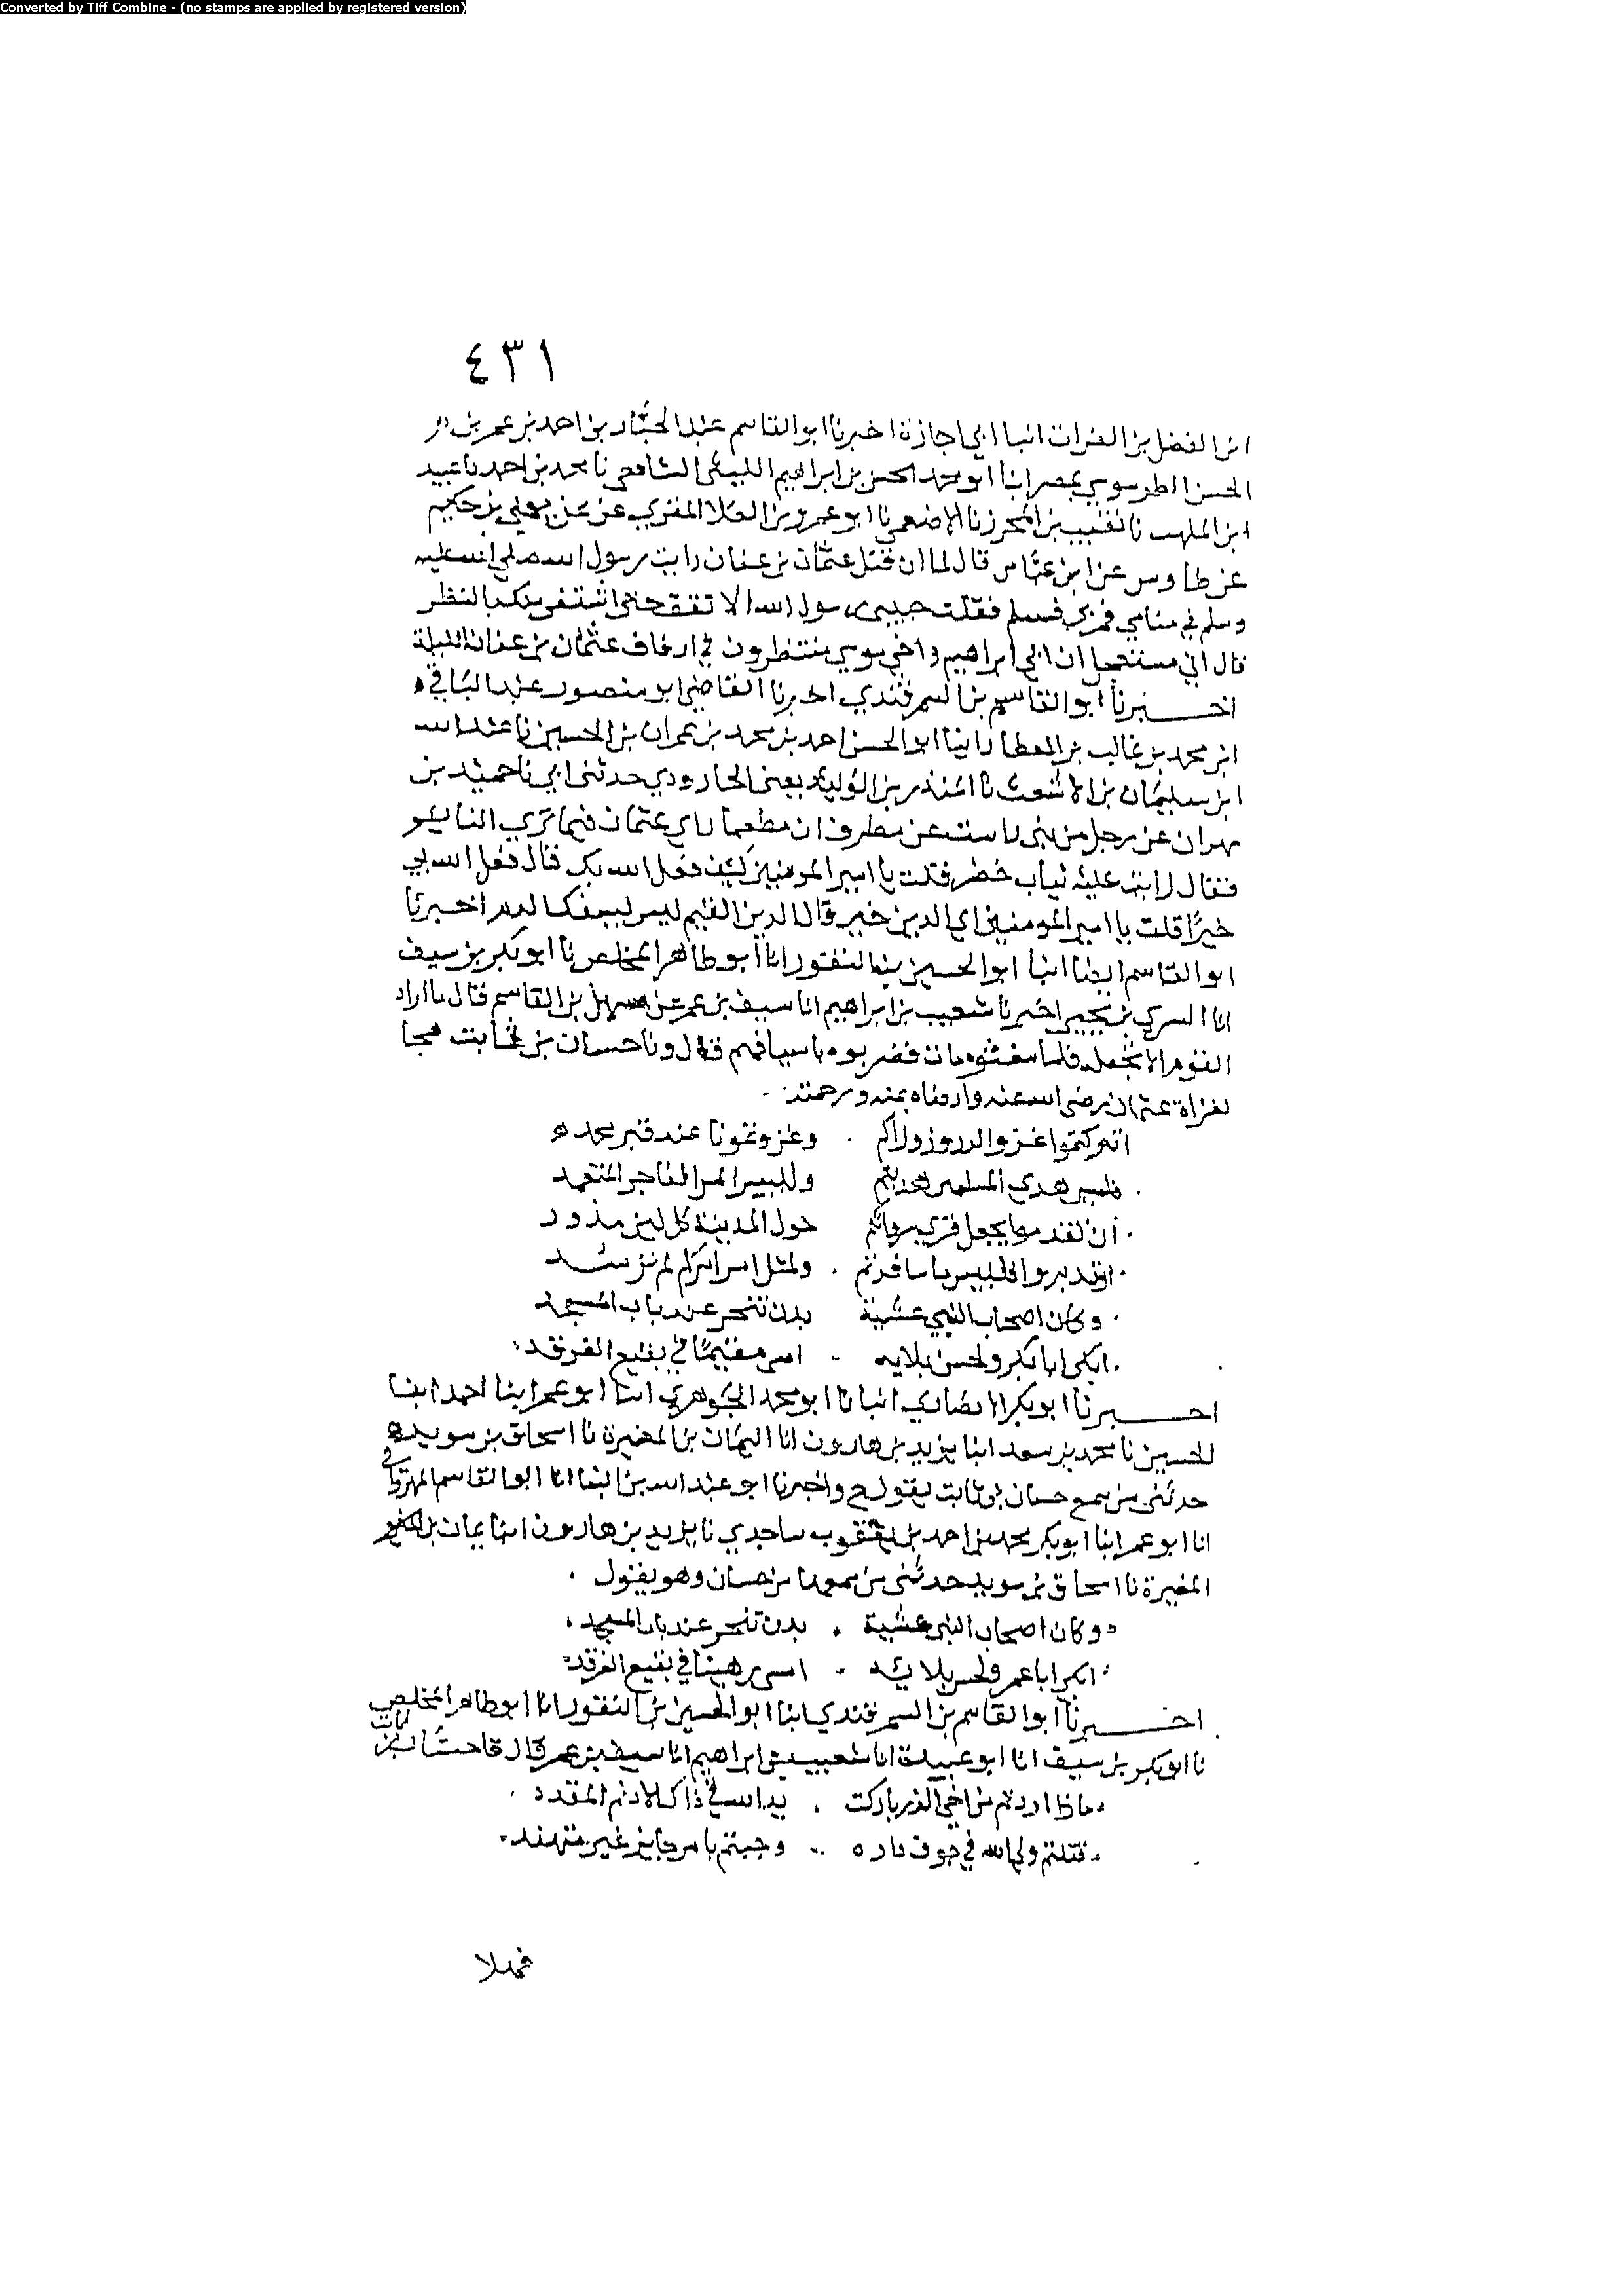 Converted by Tiff Combine - (no stamps are applied by registered version)
٤٣١
ابن الفضل بن الفرات انبا ابي اجازة اخبرنا ابو القاسم عبد الجبار بن احمد بن عمر بن
الحسن الطرسوسي بمصر انبا ابو محمد الحسن بن ابراهيم الليثي الشافعي نا محمد بن احمد نا عبيد
ابن المهلب نا بن المحرز نا الاصمعي نا ابو عمرو بن العلا المقري عن يعلى بن حكيم
عن طاوس عن ابن عباس قال لما ان قتل عثمان بن عفان رايت رسول الله صلى الله عليه
وسلم في منامي فمر بي فسلم فقلت حبيبي رسول الله الا تقف حتى اشتفى منك بالنظر
قال اني مستعجل ان ابي ابراهيم واخي موسى منتظرون في ارفاف عثمان بن عفان الليلة
اخبرنا ابو القاسم بن السمرقندي اخبرنا القاضي ابو منصور عبد الباقي
ابن محمد بن غالب بن العطار انبا ابو الحسن احمد بن محمد بن عمران بن الحسين نا عبد الله
ابن سليمان بن الاشعث نا المنذر بن الوليد يعنى الجارودي حدثنى ابي نا حميد بن
مهران عن رجل من بنى راست عن مطرف ان مطرفا راي عثمان فيما يري النايم
فقال رايت عليه ثياب خضر فقلت يا امير المومنين كيف فعل الله بك قال فعل الله بي
خيرا قلت يا امير المومنين اي الدين خير قال الدين القيم ليس بسفك الدم اخبرنا
ابو القاسم ايضا انبا ابو الحسين بن النقور انا ابو طاهر المخلص نا ابو بكر بن سيف
انا السري بن يحيى اخبرنا شعيب بن ابراهيم انا سيف بن عمر عن سهل بن القاسم قال ما اراد
القوم الا فلما مات فضربوه باسيافهم قال ونا حسان بن ثابت هجا
لغزاة عثمان رضى الله عنه وارضاه بمنه ورحمته
اتركتموا غزو الدروب وراكم وغزوتمونا عند قبر محمد
فلبيس هدي المسلمين هديتم ولبيس امر الفاجر المتعمد
ان تقدموا نجعل قري سرواتكم حول المدينة كل لين مذود
او تدبروا فلبيس ما سافرتم ولمثل امر اميركم لم يرشد
وكان اصحاب النبي عشية بدن تنحر عند باب المسجد
ابكي ابا بكر ولحسن بلايه امسى مقيما في بقيع الغرقد
اخبرنا ابو بكر الانصاري انبانا ابو محمد الجوهري انبا ابو عمر انبا احمد انبا
الحسين نا محمد بن سعد انبا يزيد بن هارون انا اليمان بن المغيرة نا اسحاق بن سويد
حدثنى من سمع حسان بن ثابت يقول ح واخبرنا ابو عبد الله بن البنا انا ابو القاسم المهرواني
انا ابو عمر انبا ابو بكر محمد بن احمد بن يعقوب نا جدي نا يزيد بن هارون انبا يمان بن
المغيرة نا اسحاق بن سويد حدثنى من سمعها من حسان وهو يقول
وكان اصحاب النبى عشية بدن تنحر عند باب المسجد
ابكي ابا عمرو لحسن بلائه امسى رهينا في بقيع الغرقد
اخبرنا ابو القاسم بن السمرقندي انبا ابو الحسين بن النقور انا ابو طاهر المخلص
نا ابو بكر بن سيف انا ابو عبيدة انا شعيب بن ابراهيم انا سيف بن عمر قال قال حسان بن ثابت
ماذا اردتم من اخي الخير باركت يد الله في ذاك الاديم المقدد
قتلتم ولي الله في جوف داره وجيتم بامر جاير غير مهتد
فهلا